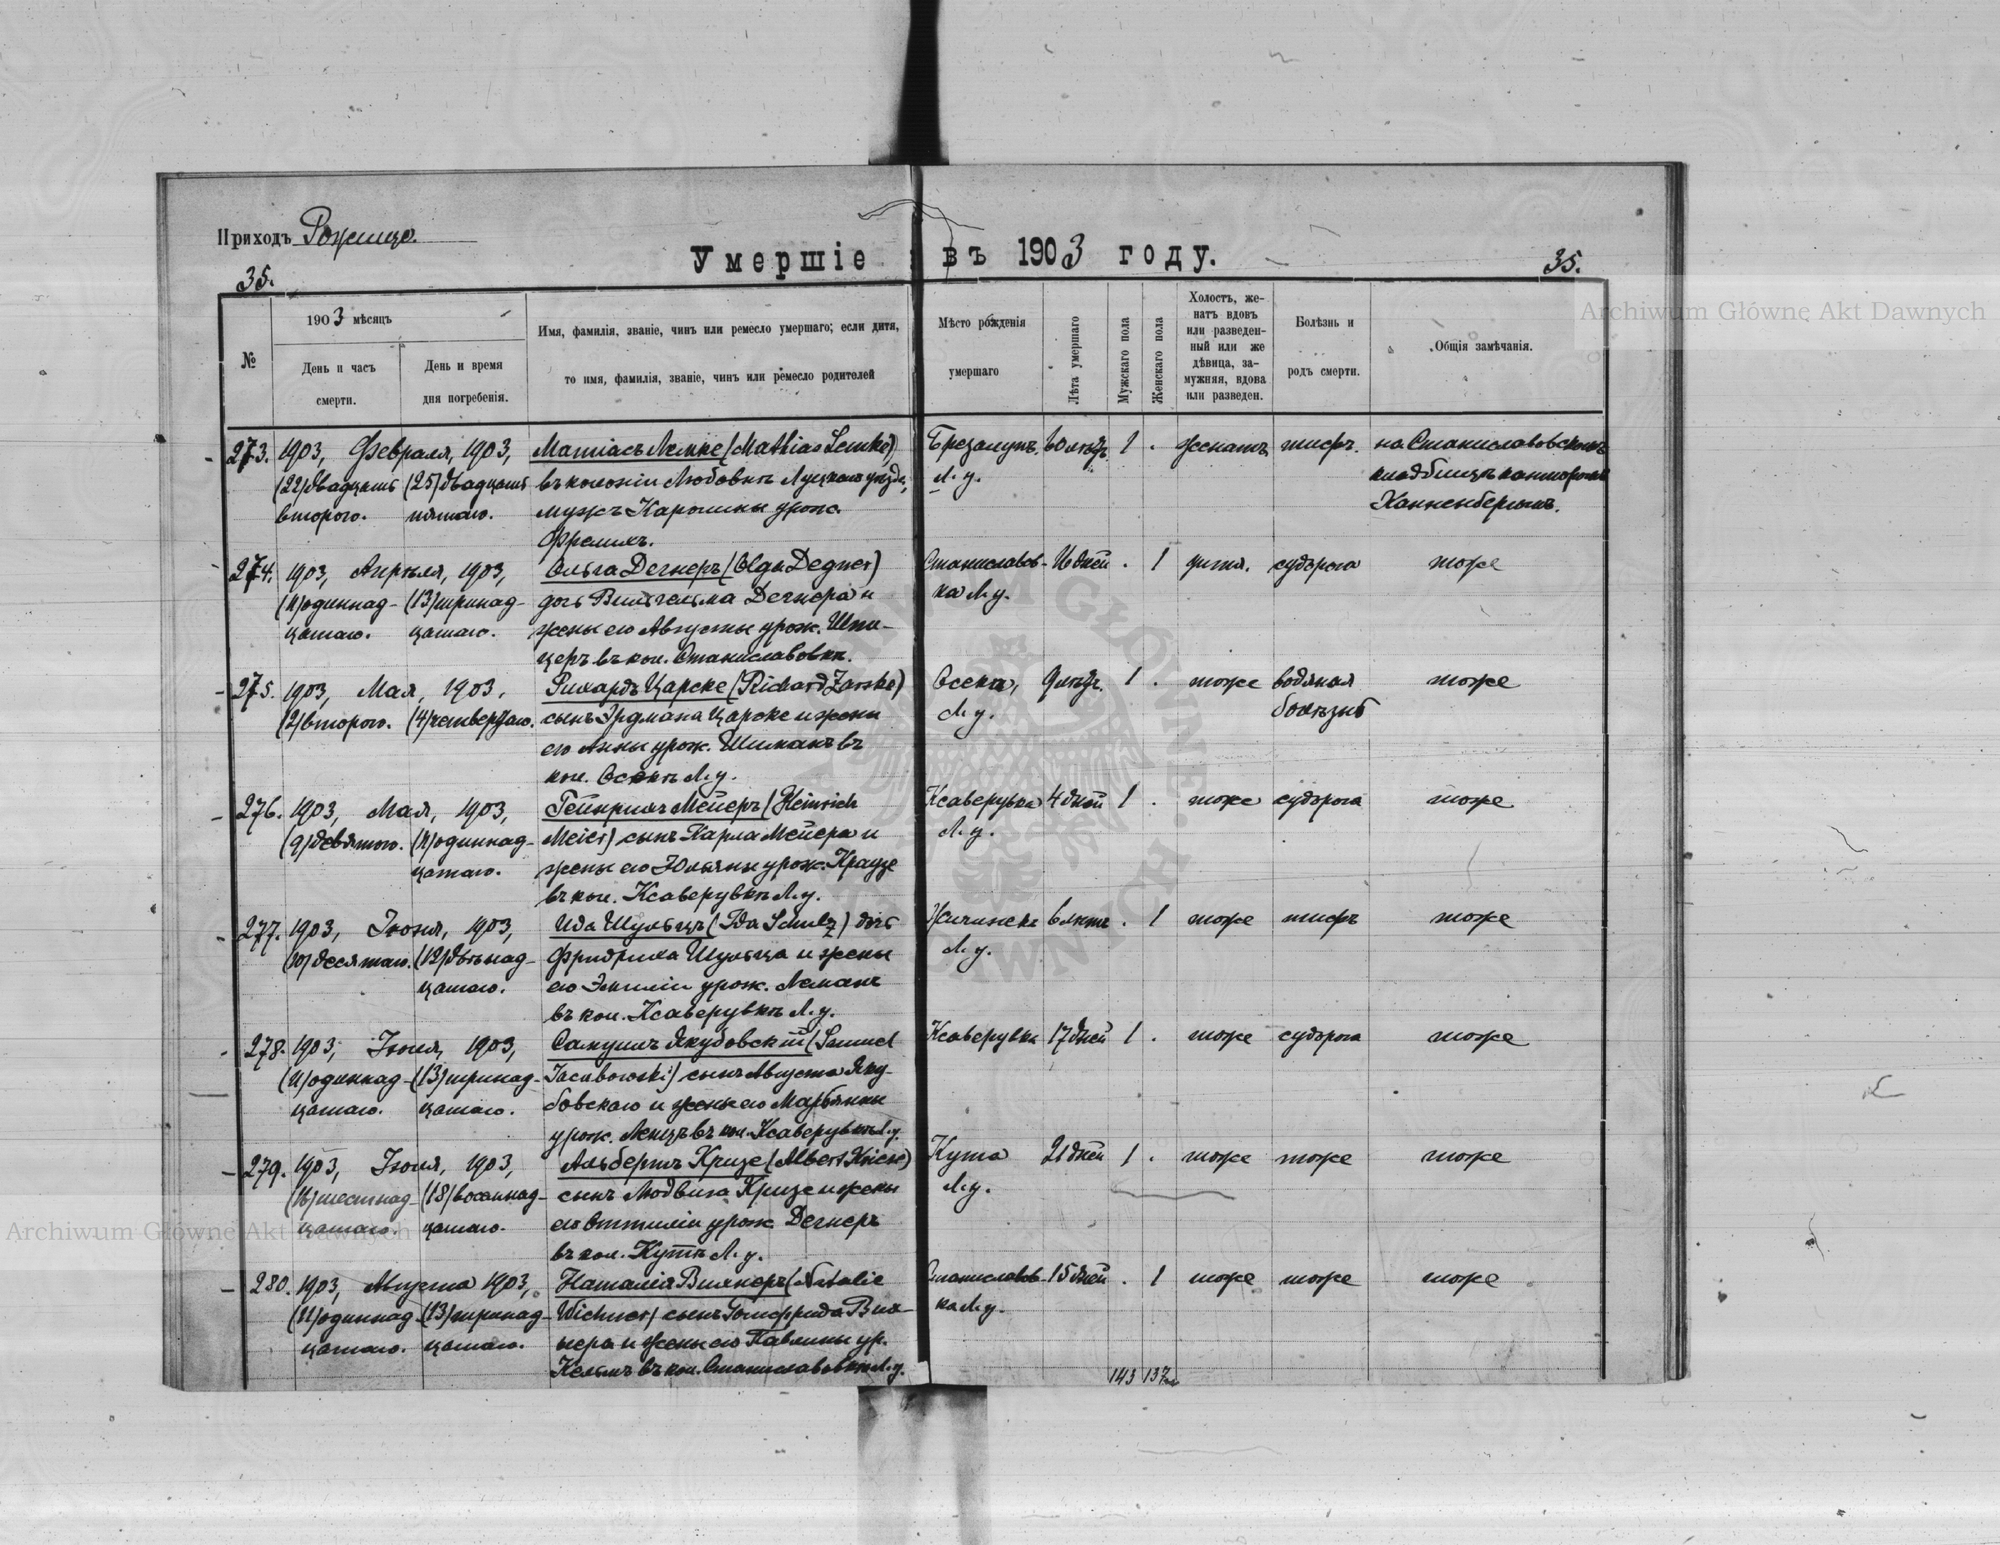 Приходъ Рожище.
Умершіе въ 1903 году.
35.
35.
№
1903 мѣсяцъ
День и часъ
смерти.
День и время
дня погребенія.
Имя, фамилія, званіе, чинъ или ремесло умершаго; если дитя,
то имя, фамилія, званіе, чинъ или ремесло родителей
Мѣсто рожденія
умершаго
Лѣта умершаго
Мужскаго пола
Женскаго пола
Холостъ, же-
натъ вдовъ
или разведен-
ный или же
дѣвица, за-
мужняя, вдова
или разведен.
Болѣзнь и
родъ смерти.
Общія замѣчанія.
273. 1903, Февраля, 1903, Матіасъ Лемке (Mathias Lemke) 60 лѣтъ 1 . женатъ тифъ. на Станиславовскомъ
(22) двадцать (25) двадцать въ колоніи Любовкѣ Луцкаго уѣзда, Л. у. кладбищѣ канторомъ
второго. пятаго. мужъ Каролины урож. Ханненбергомъ.
274. 1903, Апрѣля, 1903, Ольга Дегнеръ (Olga Degner) Станиславов- 16 дней . 1 дитя. судорога тоже
(11) одиннад- (13) тринад- дочь Вильгельма Дегнера и ка Л. у.
цатаго. цатаго. жены его Августы урож. Шпи-
церъ въ кол. Станиславовкѣ.
275. 1903, Мая, 1903, Рихардъ Царске (Richard Zarske) Осека, 9 лѣтъ. 1 . тоже водяная тоже
(2) второго. (4) четвертаго. сынъ Эрдмана Царске и жены Л. у. болѣзнь
его Анны урож. Шиманъ въ
кол. Осекѣ Л. у.
276. 1903, Мая, 1903, Гейнрихъ Мейеръ (Heinrich Ксаверувка 4 дней 1 . тоже судорога тоже
(9) девятого. (11) одиннад- Meier) сынъ Карла Мейера и Л. у.
цатаго. жены его Юльяны урож. Краузе
въ кол. Ксаверувкѣ Л. у.
277. 1903, Іюня, 1903, Ида Шульцъ (Ida Schulz) дочь 6 лѣтъ . 1 тоже тифъ тоже
(10) десятаго. (12) двѣнад- Фридриха Шульца и жены Л. у.
цатаго. его Эмиліи урож. Леманъ
въ кол. Ксаверувкѣ Л. у.
278. 1903, Іюня, 1903, Самуилъ Якубовскій (Samuel Ксаверувка 17 дней 1 . тоже судорога тоже
(11) одиннад- (13) тринад- Jacubowski) сынъ Августа Яку-
цатаго. цатаго. бовскаго и жены его Марьянны
урож. Ленцъ въ кол. Ксаверувкѣ Л. у.
279. 1903, Іюня, 1903, Альбертъ Кризе (Albert Kriese) Кута 21 дней 1 . тоже тоже тоже
(16) шестнад- (18) восемнад- сынъ Людвига Кризе и жены Л. у.
цатаго. цатаго. его Оттиліи урож. Дегнеръ
въ кол. Кутѣ Л. у.
280. 1903, Августа 1903, Наталія Вихнеръ (Natalie Станиславов- 15 дней . 1 тоже тоже тоже
(11) одиннад- (13) тринад- Wichner) сынъ Готфрида Вих- ка Л. у.
цатаго. цатаго. нера и жены его Павлины ур.
въ кол. Станиславовкѣ Л. у.
143 137
Archiwum Główne Akt Dawnych
Archiwum Główne Akt Dawnych